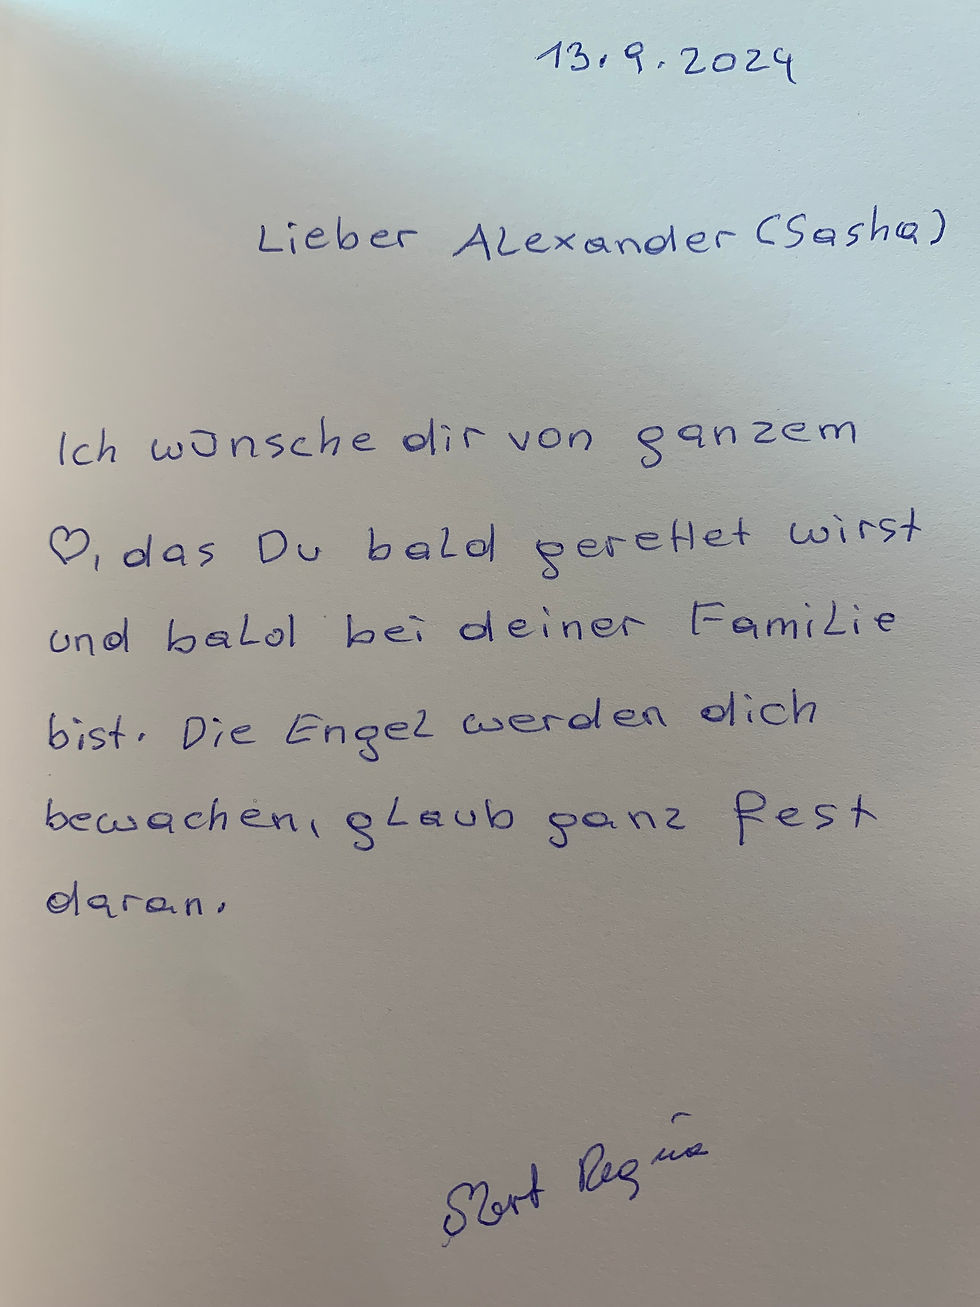 13.9.2024
Lieber Alexander (Sasha)
Ich wünsche dir von ganzem
♡, das Du bald gerettet wirst
und bald bei deiner Familie
bist. Die Engel werden dich
bewachen, glaub ganz fest
daran.
Regina